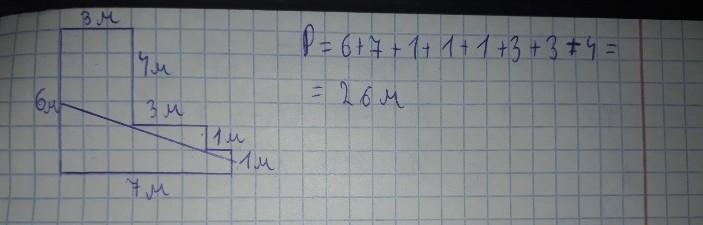 3 м
4м
6м
3 м
1м
1м
7 м
P = 6+7+1+1+1+3+3+4 =
= 26 м